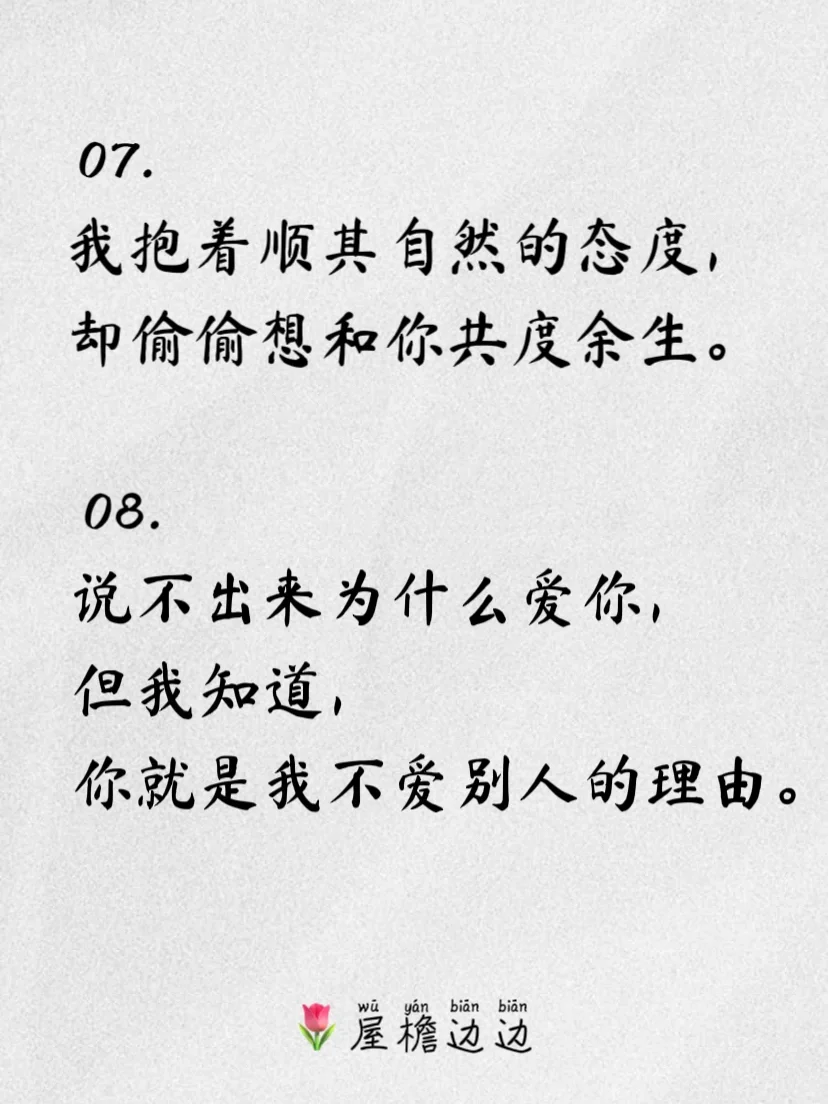 07.
我抱着顺其自然的态度,
却偷偷想和你共度余生。
08.
说不出来为什么爱你,
但我知道,
你就是我不爱别人的理由。
wū yán biān biān
屋檐边边